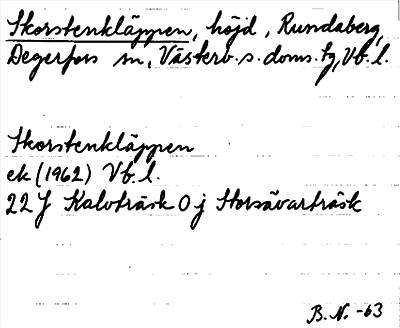 Skorstenkläppen, höjd, Rundaberg,
Degerfors sn, Västerb. s. doms. tg, Vb. l.
Skorstenkläppen
ek (1962) Vb. l.
22 J Kalvträsk 0 j Storsävarträsk
B. N. -63